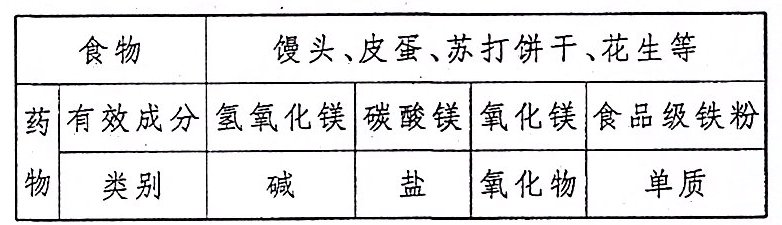 食物 馒头、皮蛋、苏打饼干、花生等
药物 有效成分 氢氧化镁 碳酸镁 氧化镁 食品级铁粉
类别 碱 盐 氧化物 单质